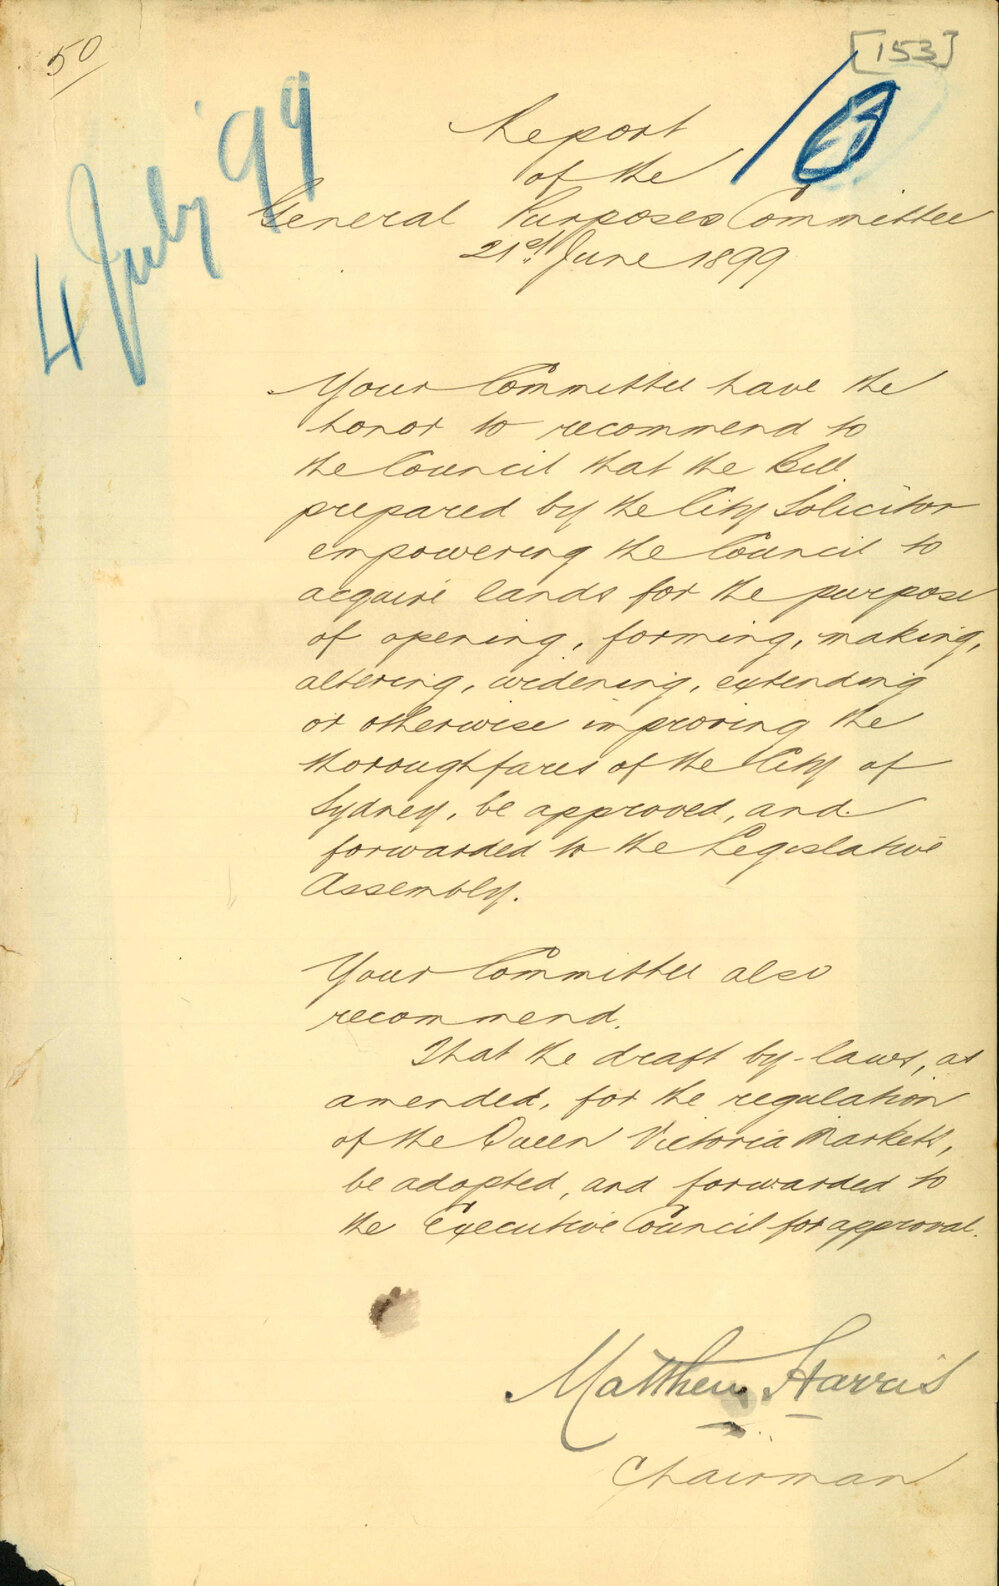 50
[153]
4 July '99
Report
of the
General Purposes Committee
21st June 1899
Your Committee have the
honor to recommend to
the Council that the Bill
prepared by the City Solicitor
empowering the Council to
acquire lands for the purpose
of opening, forming, making,
altering, widening, extending
or otherwise improving the
thoroughfares of the City of
Sydney, be approved, and
forwarded to the Legislative
Assembly.
Your Committee also
recommend.
That the draft by-laws, as
amended, for the regulation
of the Queen Victoria Markets,
be adopted, and forwarded to
the Executive Council for approval.
Matthew Harris
Chairman